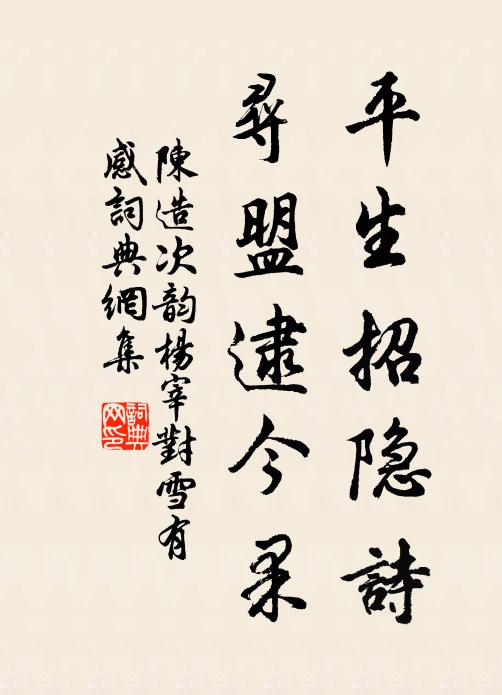 平生招隐詩
尋盟逮今果
陳造次韵楊宰對雪有
感詞典網集
詞典
网印